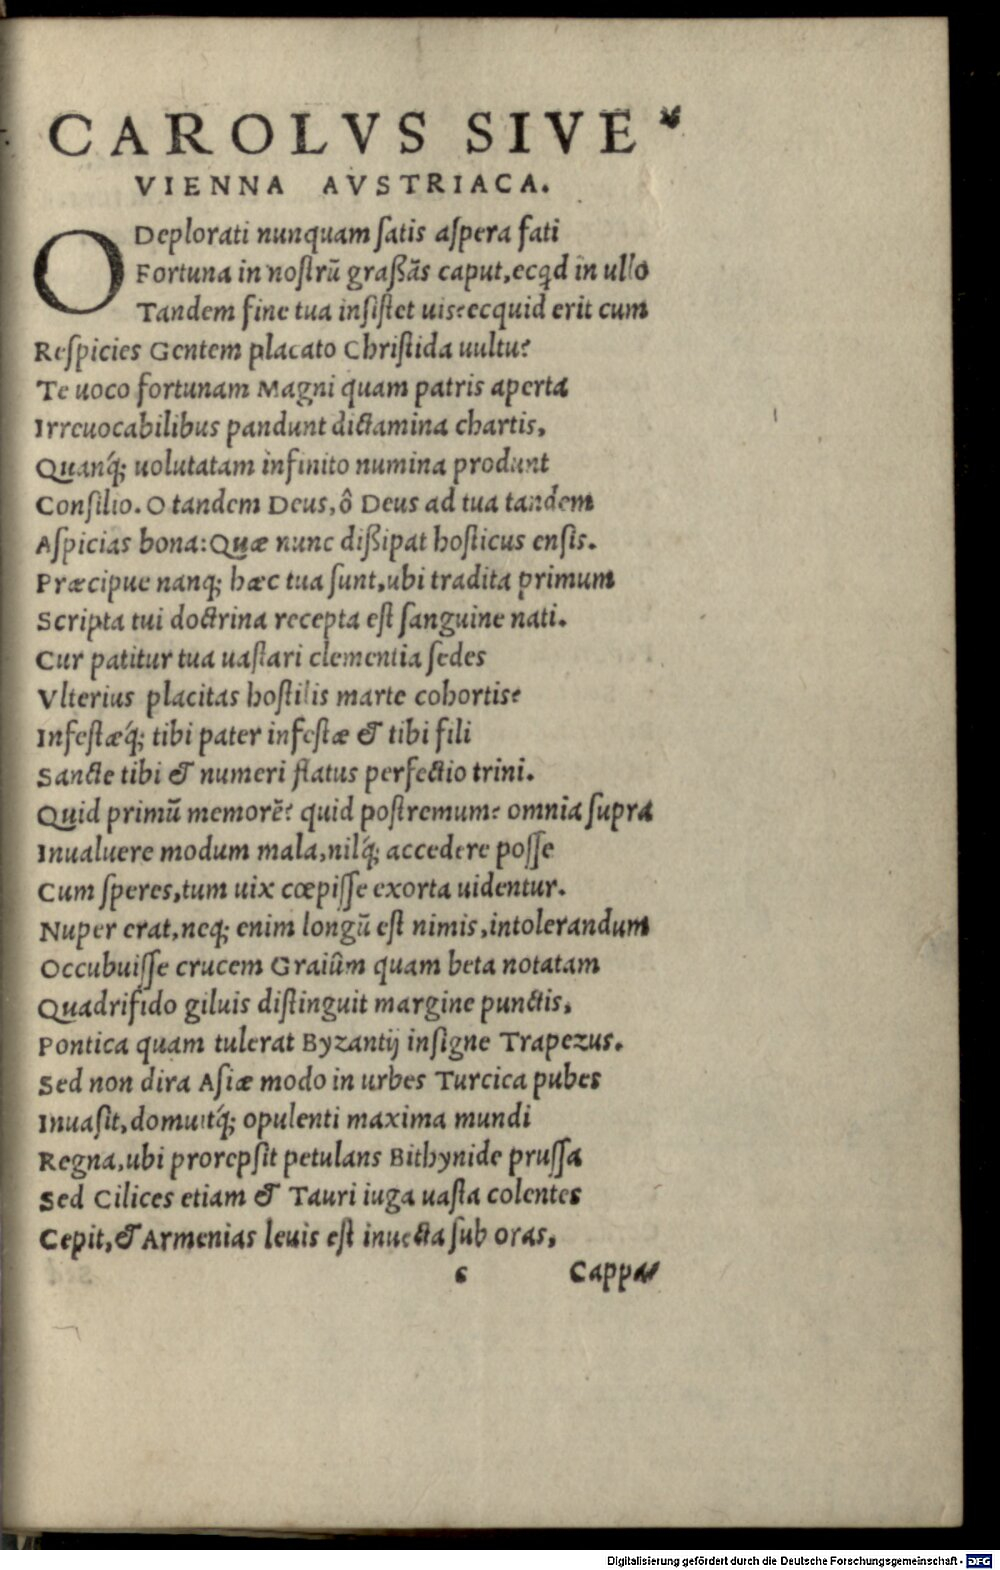 CAROLVS SIVE
VIENNA AVSTRIACA.
O Deplorati nunquam ſatis aſpera fati
Fortuna in noſtrū graßās caput, ecqd in ullo
Tandem fine tua inſiſtet uis? ecquid erit cum
Reſpicies Gentem placato Chriſtida uultu?
Te uoco fortunam Magni quam patris aperta
Irreuocabilibus pandunt dictamina chartis,
Quanq́; uolutatam infinito numina produnt
Conſilio. O tandem Deus, ô Deus ad tua tandem
Aſpicias bona: Quæ nunc dißipat hoſticus enſis.
Præcipue nanq; hæc tua ſunt, ubi tradita primum
Scripta tui doctrina recepta eſt ſanguine nati.
Cur patitur tua uaſtari clementia ſedes
Vlterius placitas hoſtilis marte cohortis?
Infeſtæq́; tibi pater infeſtæ & tibi fili
Sancte tibi & numeri flatus perfectio trini.
Quid primū memorē? quid poſtremum? omnia ſupra
Inualuere modum mala, nilq́; accedere poſſe
Cum ſperes, tum uix cœpiſſe exorta uidentur.
Nuper erat, neq; enim longū eſt nimis, intolerandum
Occubuiſſe crucem Graiûm quam beta notatam
Quadrifido giluis diſtinguit margine punctis,
Pontica quam tulerat Byzantij inſigne Trapezus.
Sed non dira Aſiæ modo in urbes Turcica pubes
Inuaſit, domuitq́; opulenti maxima mundi
Regna, ubi prorepſit petulans Bithynide pruſſa
Sed Cilices etiam & Tauri iuga uaſta colentes
Cepit, & Armenias leuis eſt inuecta ſub oras,
c Cappa⸗
Digitalisierung gefördert durch die Deutsche Forschungsgemeinschaft - DFG